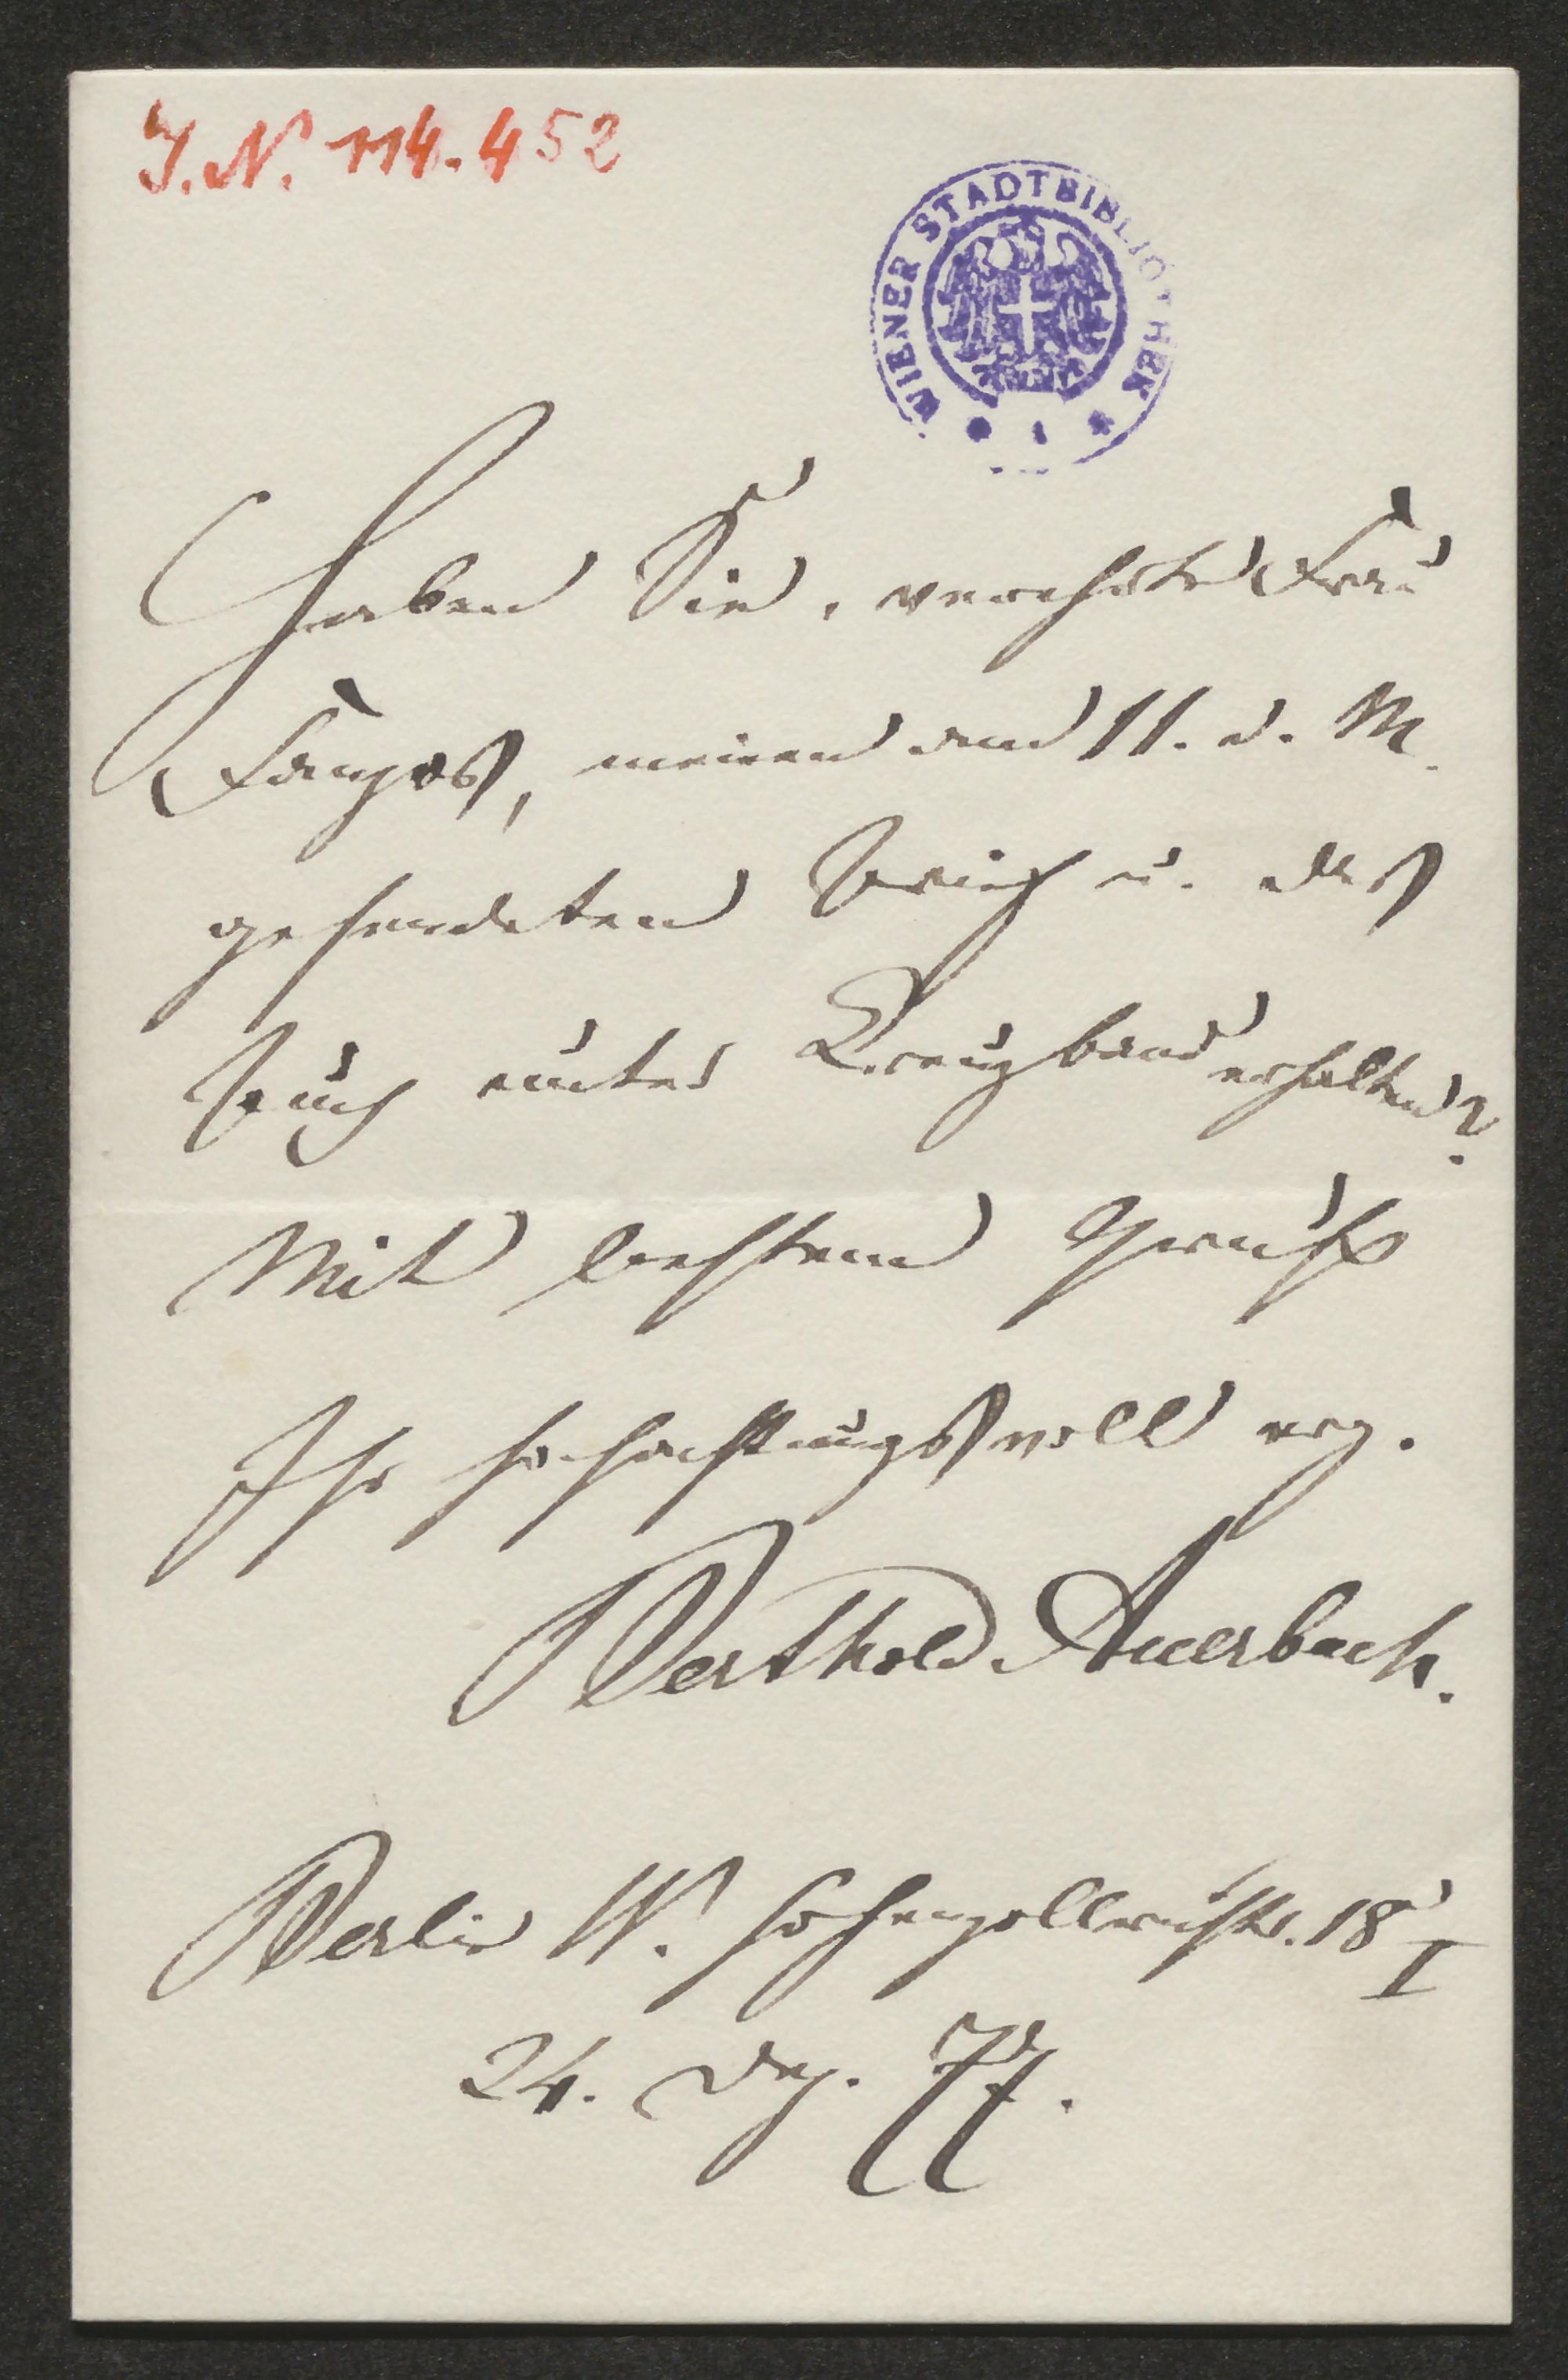 I.N. 114.452
WIENER STADTBIBLIOTHEK
Haben Sie, verehrte Frau
meinen am 11. d. M.
gesendeten Brief u. das
Buch unter Kreuzband erhalten?
Mit bestem Gruß
Ihr hochachtungsvoll erg.
Berthold Auerbach.
Berlin W. Hohenzollernstr. 18 I
24. Dez. 77.